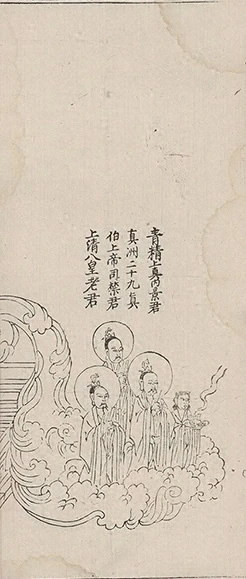 青精上真內景君
真洲二十九真
伯上帝司禁君
上清八皇老君